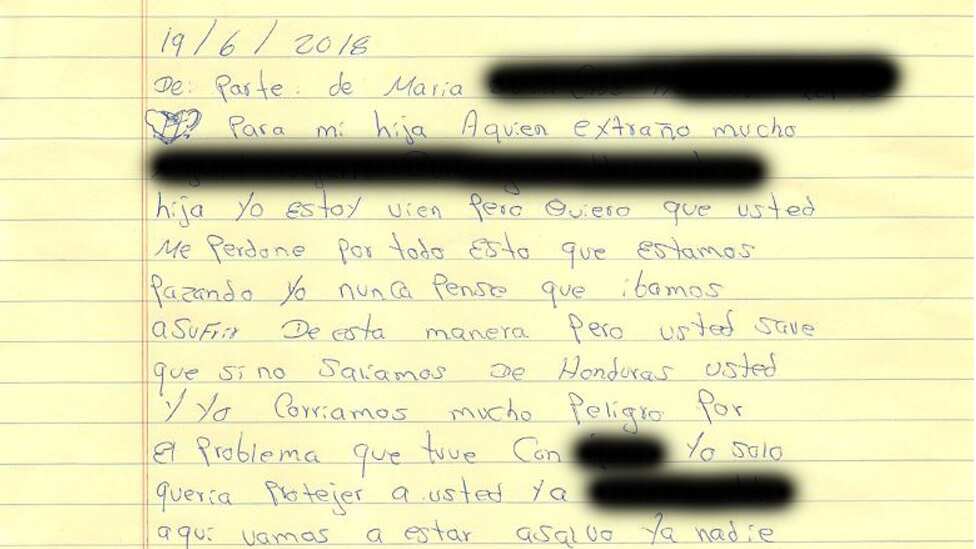 19/6/2018
De: Parte: de Maria
Para mi hija Aquien extraño mucho
hija yo estoy vien pero Quiero que usted
Me Perdone por todo esto que estamos
pazando yo nunca Pense que ibamos
asufrir De esta manera pero usted save
que si no Saliamos De Honduras usted
y yo Corriamos mucho Peligro por
el Problema que tuve Con Yo solo
queria Protejer a usted ya
aqui vamos a estar asalvo ya nadie